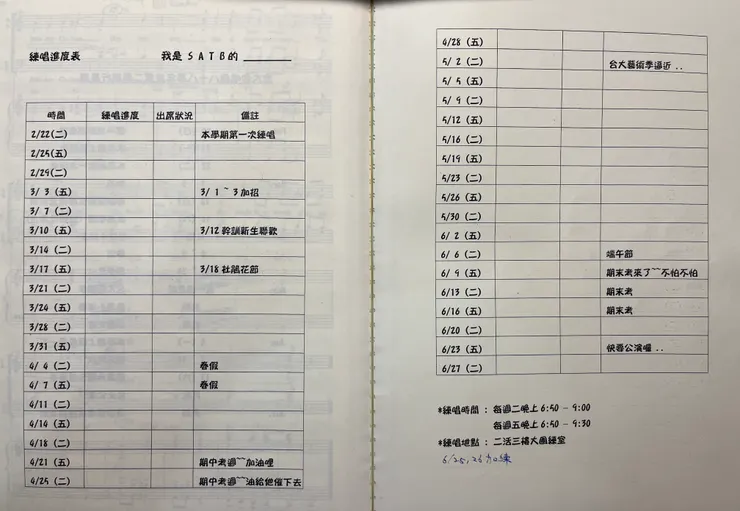 練唱進度表 我是 S A T B 的 ________
時間 練唱進度 出席狀況 備註
2/22(二) 本學期第一次練唱
2/25(五)
2/29(二)
3/ 3 (五) 3/ 1 ~ 3 加招
3/ 7 (二)
3/10 (五) 3/12 幹訓新生聯歡
3/14 (二)
3/17 (五) 3/18 杜鵑花節
3/21 (二)
3/24 (五)
3/28 (二)
3/31 (五)
4/ 4 (二) 春假
4/ 7 (五) 春假
4/11 (二)
4/14 (五)
4/18 (二)
4/21 (五) 期中考週~~加油哩
4/25 (二) 期中考週~~油給他催下去
4/28 (五)
5/ 2 (二) 台大藝術季逼近 ..
5/ 5 (五)
5/ 9 (二)
5/12 (五)
5/16 (二)
5/19 (五)
5/23 (二)
5/26 (五)
5/30 (二)
6/ 2 (五)
6/ 6 (二) 端午節
6/ 9 (五) 期末考來了~~不怕不怕
6/13 (二) 期末考
6/16 (五) 期末考
6/20 (二)
6/23 (五) 快要公演囉 ..
6/27 (二)
*練唱時間 : 每週二晚上 6:50 - 9:00
每週五晚上 6:50 - 9:30
*練唱地點 : 二活三樓大團練室
6/25, 26 加練